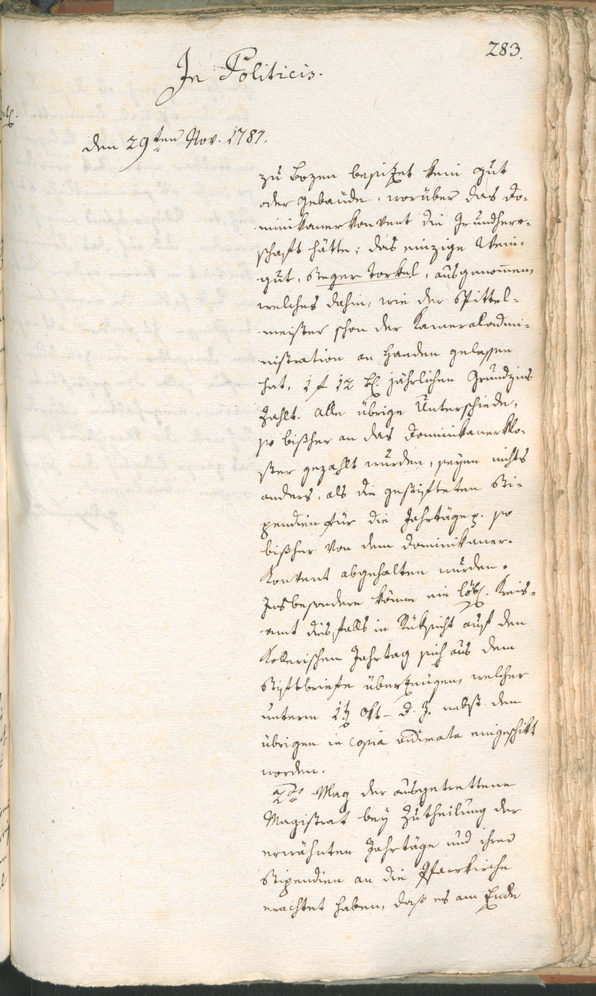 283.
In Politicis.
den 29ten Nov. 1787.
zu Bozen besizet kein Gut
oder Gebäude, worüber das Do-
minikanerkonvent die Grundherr-
schaft hätte; das einzige Wein-
gut, Steger Torkel, ausgenommen,
welches dahin, wie der Spittel-
meister schon der Kameraladmi-
nistration an Handen gelassen
hat, 1 f 12 xr jährlichen Grundzins
zahlt. Alle übrige Unterschiede,
so bißher an das Dominikanerklo-
ster gezahlt wurden, seyen nichts
anders, als die gestifteten Sti-
pendien für die Jahrtäge so
bißher von dem Dominikaner-
Konvent abgehalten wurden.
Insbesondere könne ein löbl. Kreis-
amt dies,falls in Rüksicht auf den
Jahrtag sich aus dem
Stiftbriefe überzeugen, welcher
unterm Okt. d. J. nebst den
übrigen in Copia vidimata eingeschikt
worden.
2do Mag der ausgetrettene
Magistrat bey Zutheilung der
erwähnten Jahrtäge und ihrer
Stipendien an die Pfarrkirche
erachtet haben, daß es am Ende